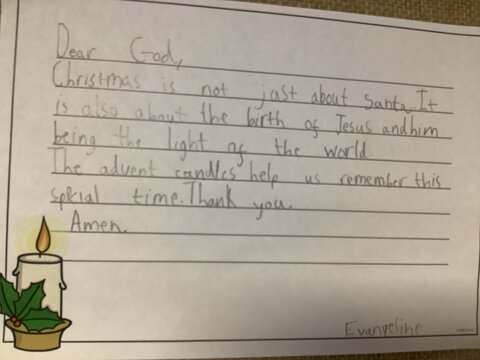 Dear God,
Christmas is not just about Santa. It
is also about the birth of Jesus and him
being the light of the world.
The advent candles help us remember this
spicial time. Thank you.
Amen.
Evangeline